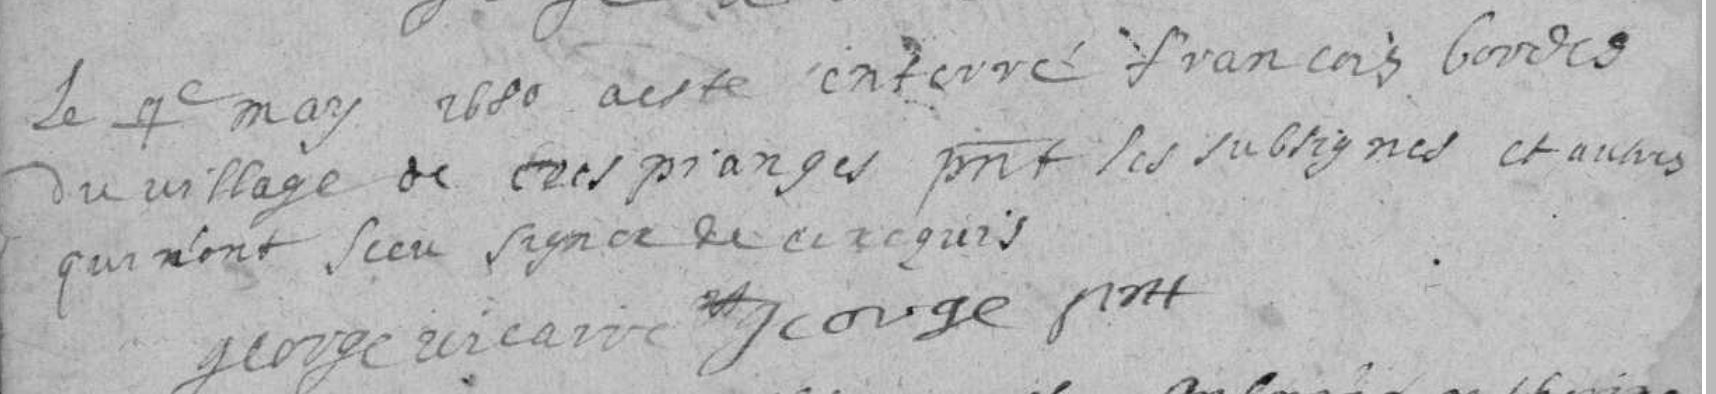 Le 4e may 1680 aeste enterré francois bordes
du village de crespianges pnt les subsignes et autres
qui n'ont sceu signer de ce requis
george vicaire george pnt